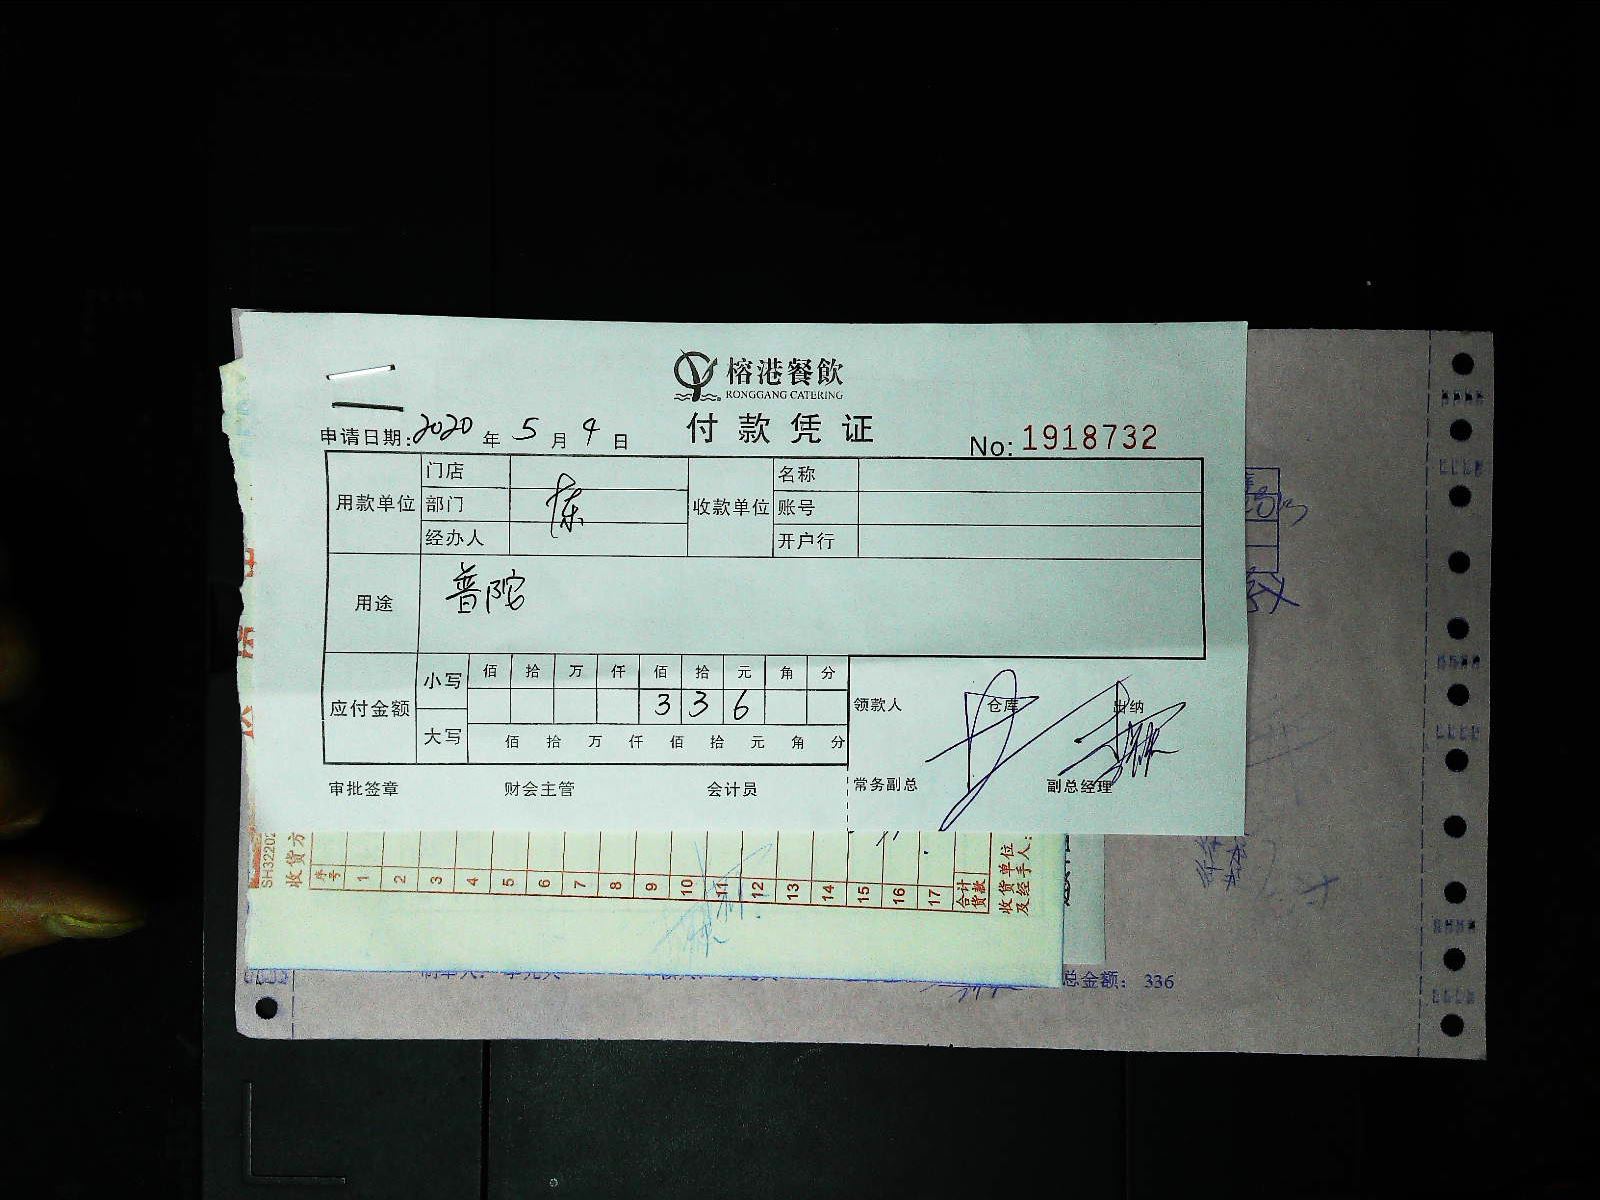 榕港餐飲
RONGGANG CATERING
付款凭证
申请日期:2020年5月4日
No:1918732
用款单位
门店
部门
经办人
陈
收款单位
名称
账号
开户行
用途
普陀
应付金额
小写
佰 拾 万 仟 佰 拾 元 角 分
3 3 6
大写
佰 拾 万 仟 佰 拾 元 角 分
领款人 仓库 出纳
审批签章 财会主管 会计员 常务副总 副总经理
收货方
序号 1 2 3 4 5 6 7 8 9 10 11 12 13 14 15 16 17
合计货款
收货单位及经手人:
总金额: 336